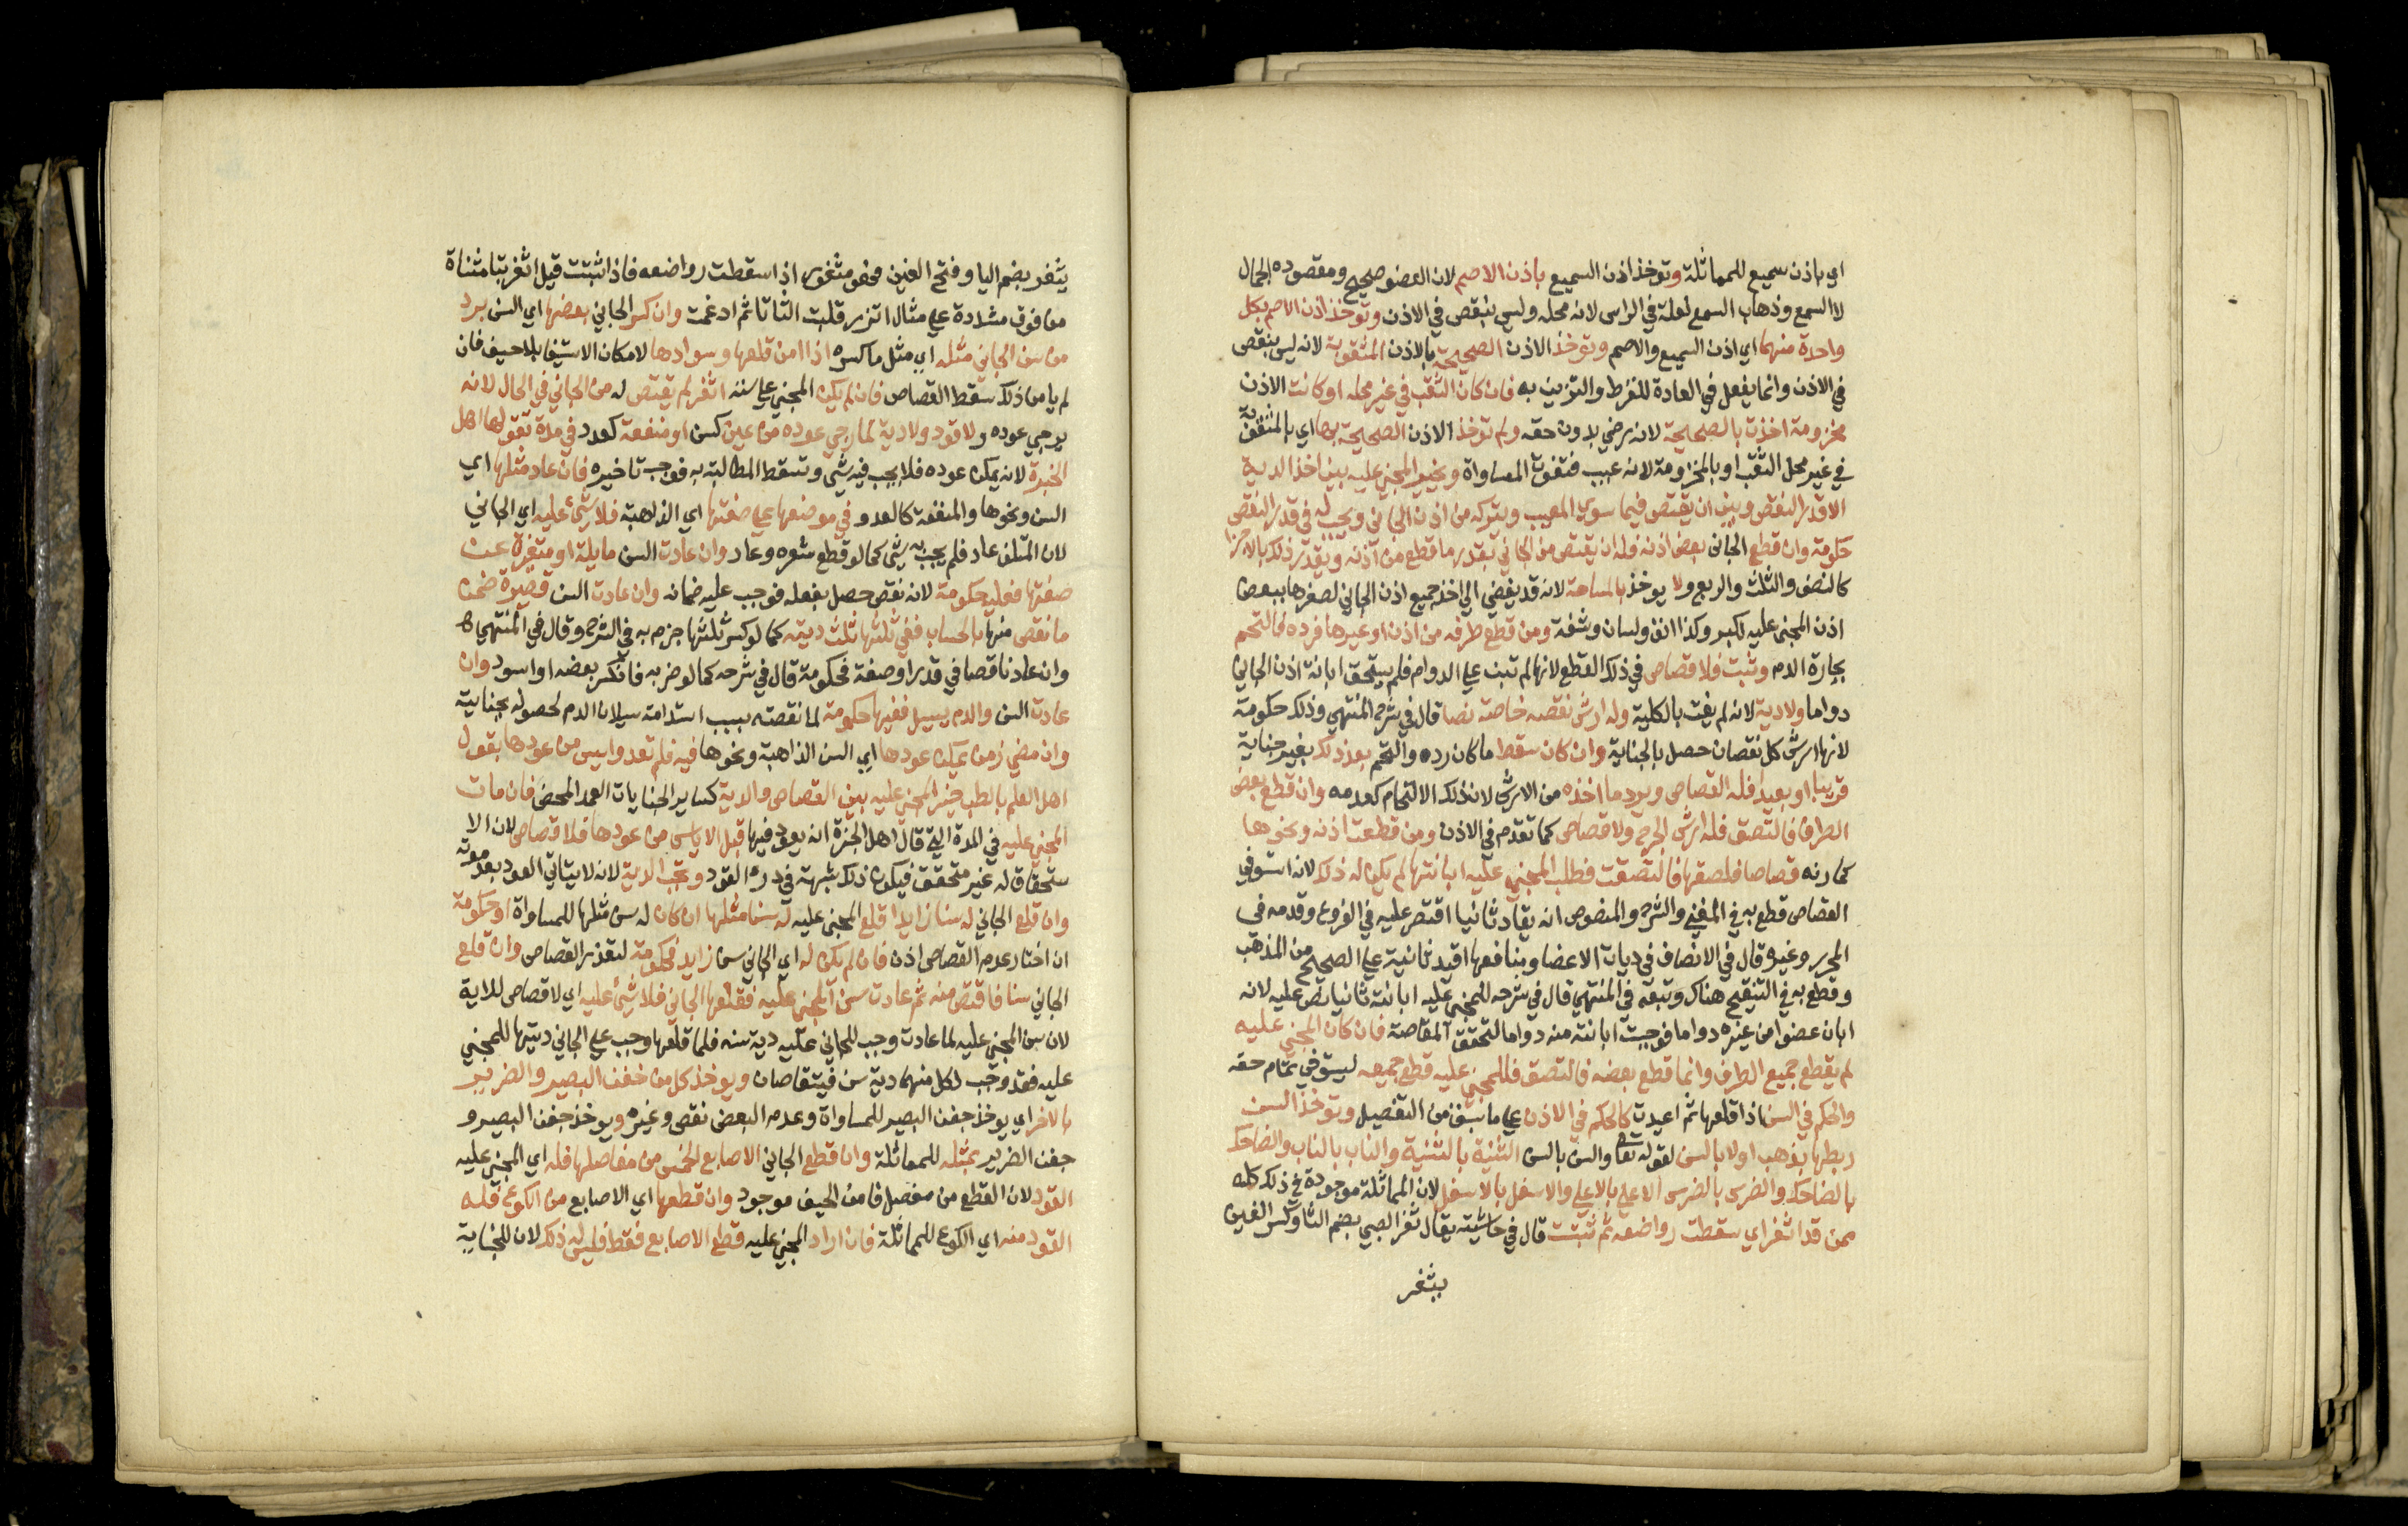 اي باذن سميع للمماثلة وتوخذ اذن السميع باذن الاصم لان العضو صحيح ومقصوده الجمال
لا السمع وذهاب السمع لعلة في الراس لانه محله وليس بنقص في الاذن وتوخذ اذن الاصم بكل
واحدة منهما اي اذن السميع والاصم وتوخذ الاذن الصحيحة بالاذن المثقوبة لانه ليس بنقص
في الاذن وانما يفعل في العادة للقرط والتزين به فان كان الثقب في غير محله او كانت الاذن
مخزومة اخذت بالصحيحة لانه رضي بدون حقه ولم توخذ الاذن الصحيحة بها اي بالمثقوبة
في غير محل الثقب او بالمخزومة لانه عيب فتفوت المساواة ويخير المجني عليه بين اخذ الدية
الا قدر النقص وبين ان يقتص فيما سوى المعيب ويتركه من اذن الجاني ويجب له في قدر النقص
حكومة وان قطع الجاني بعض اذنه فله ان يقتص من الجاني بقدر ما قطع من اذنه ويقدر ذلك بالاجزا
كالنصف والثلث والربع ولا يوخذ بالمساحة لانه قد يفضي الي اخذ جميع اذن الجاني لصغرها ببعض
اذن المجني عليه لكبر وكذا انف ولسان وشفة ومن قطع طرفه من اذن او غيرها فرده فالتحم
بحارة الدم وثبت فلا قصاص في ذلك القطع لانها لم تبن علي الدوام فلم يستحق ابانة اذن الجاني
دواما ولا دية لانه لم يفت بالكلية وله ارش نقصه خاصة نصا قال في شرح المنتهي وذلك حكومة
لانها ارش كل نقصان حصل بالجناية وان كان سقط ما كان رده والتحم بعد ذلك بغير جناية
قريبا او بعيدا فله القصاص ويرد ما اخذه من الارش لان ذلك الالتحام كعدمه وان قطع بعض
الطرف فالتصق فله ارش الجرح ولا قصاص كما تقدم في الاذن ومن قطعت اذنه ونحوها
كمارنه قصاصا فالصقها فالتصقت فطلب المجني عليه ابانتها لم يكن له ذلك لانه استوفي
القصاص قطع به في المغني والشرح والمنصوص انه يقاد ثانيا اقتصر عليه في الفروع وقدمه في
المحرر وغيره قال في الانصاف في ديات الاعضا ومنافعها اقيد ثانية علي الصحيح من المذهب
وقطع به في التنقيح هناك وتبعه في المنتهي قال في شرحه للمجني عليه ابانته ثانيا نص عليه لانه
ابان عضوا من غيره دواما فوجبت ابانته منه دواما لتحقق المقاصة فان كان المجني عليه
لم يقطع جميع الطرف وانما قطع بعضه فالتصق فللمجني عليه قطع جميعه ليستوفي تمام حقه
والحكم في السن اذا قلعها ثم اعيدت كالحكم في الاذن علي ما سبق من التفصيل وتوخذ السن
ربطها بذهب اولا بالسن لقوله تعا والسن بالسن الثنية بالثنية والناب بالناب والضاحك
بالضاحك والضرس بالضرس الاعلي بالاعلي والاسفل بالاسفل لان المماثلة موجودة في ذلك كله
ممن قد اثغر اي سقطت رواضعه ثم نبتت قال في حاشيته يقال ثغر الصبي بضم الثا وكسر الغين
يثغر
يثغر بضم اليا وفتح الغين فهو مثغور اذا سقطت رواضعه فاذا نبتت قيل اثغر بتا مثناة
من فوق مشددة علي مثال اتزر قلبت الثا تا ثم ادغمت وان كسر الجاني بعضها اي السن برد
من سن الجاني مثله اي مثل ما كسره اذا امن قلعها وسوادها لامكان الاستيفا بلا حيف فان
لم يامن ذلك سقط القصاص فان لم يكن المجني علي سنه اثغر لم يقتص له من الجاني في الحال لانه
يرجي عوده ولا قود ولا دية لما رجي عوده من عين كسن او منفعة كعدو في مدة تقولها اهل
الخبرة لانه يمكن عوده فلا يجب فيه شي وتسقط المطالبة به فوجب تاخيره فان عاد مثلها اي
السن ونحوها والمنفعة كالعدو في موضعها علي صفتها اي الذاهبة فلا شئ عليه اي الجاني
لان المتلف عاد فلم يجب به شئ كما لو قطع شعره وعاد وان عادت السن مايلة او متغيرة عن
صفتها فعليه حكومة لانه نقص حصل بفعله فوجب عليه ضمانه وان عادت السن قصيرة ضمن
ما نقص منها بالحساب ففي ثلثها ثلث ديته كما لو كسر ثلثها جزم به في الشرح وقال في المنتهي
وان عاد ناقصا في قدر او صفة فحكومة قال في شرحه كما لو ضربه فانكسر بعضه او اسود وان
عادت السن والدم يسيل ففيها حكومة لما نقصته بسبب استدامة سيلان الدم لحصوله بجنايته
وان مضي زمن يمكن عودها اي السن الذاهبة ونحوها فيه فلم تعد وايس من عودها بقول
اهل العلم بالطب خير المجني عليه بين القصاص والدية كساير الجنايات العمد المحض فان مات
المجني عليه في المدة التي قال اهل الخبرة انه يعود فيها قبل الاياس من عودها فلا قصاص لان الا
ستحقاق له غير متحقق فيكون ذلك شبهة في درء القود وتجب الدية لانه لا يتاتي العود بعد موته
وان قلع الجاني له سنا زايدا قلع المجني عليه له سنا مثلها ان كان له سن مثلها للمساواة او حكومة
ان اختار عدم القصاص اذن فان لم يكن له اي الجاني سن زايد فحكومة لتعذر القصاص وان قلع
الجاني سنا فاقتص منه ثم عادت سن المجني عليه فقلعها الجاني فلا شئ عليه اي لا قصاص للاية
لان سن المجني عليه لما عادت وجب للجاني عليه دية سنه فلما قلعها وجب علي الجاني ديتها للمجني
عليه فقد وجب لكل منهما دية سن فيتقاصان ويوخذ كل من جفن البصير والضرير
بالاخر اي يوخذ جفن البصير للمساواة وعدم البعض نقص وغيره ويوخذ جفن البصير و
جفن الضرير بمثله للمماثلة وان قطع الجاني الاصابع الخمس من مفاصلها فله اي المجني عليه
القود لان القطع من مفصل فامن الحيف موجود وان قطعها اي الاصابع من الكوع فله
القود منه اي الكوع للمماثلة فان اراد المجني عليه قطع الاصابع فقط فليس له ذلك لان للجناية